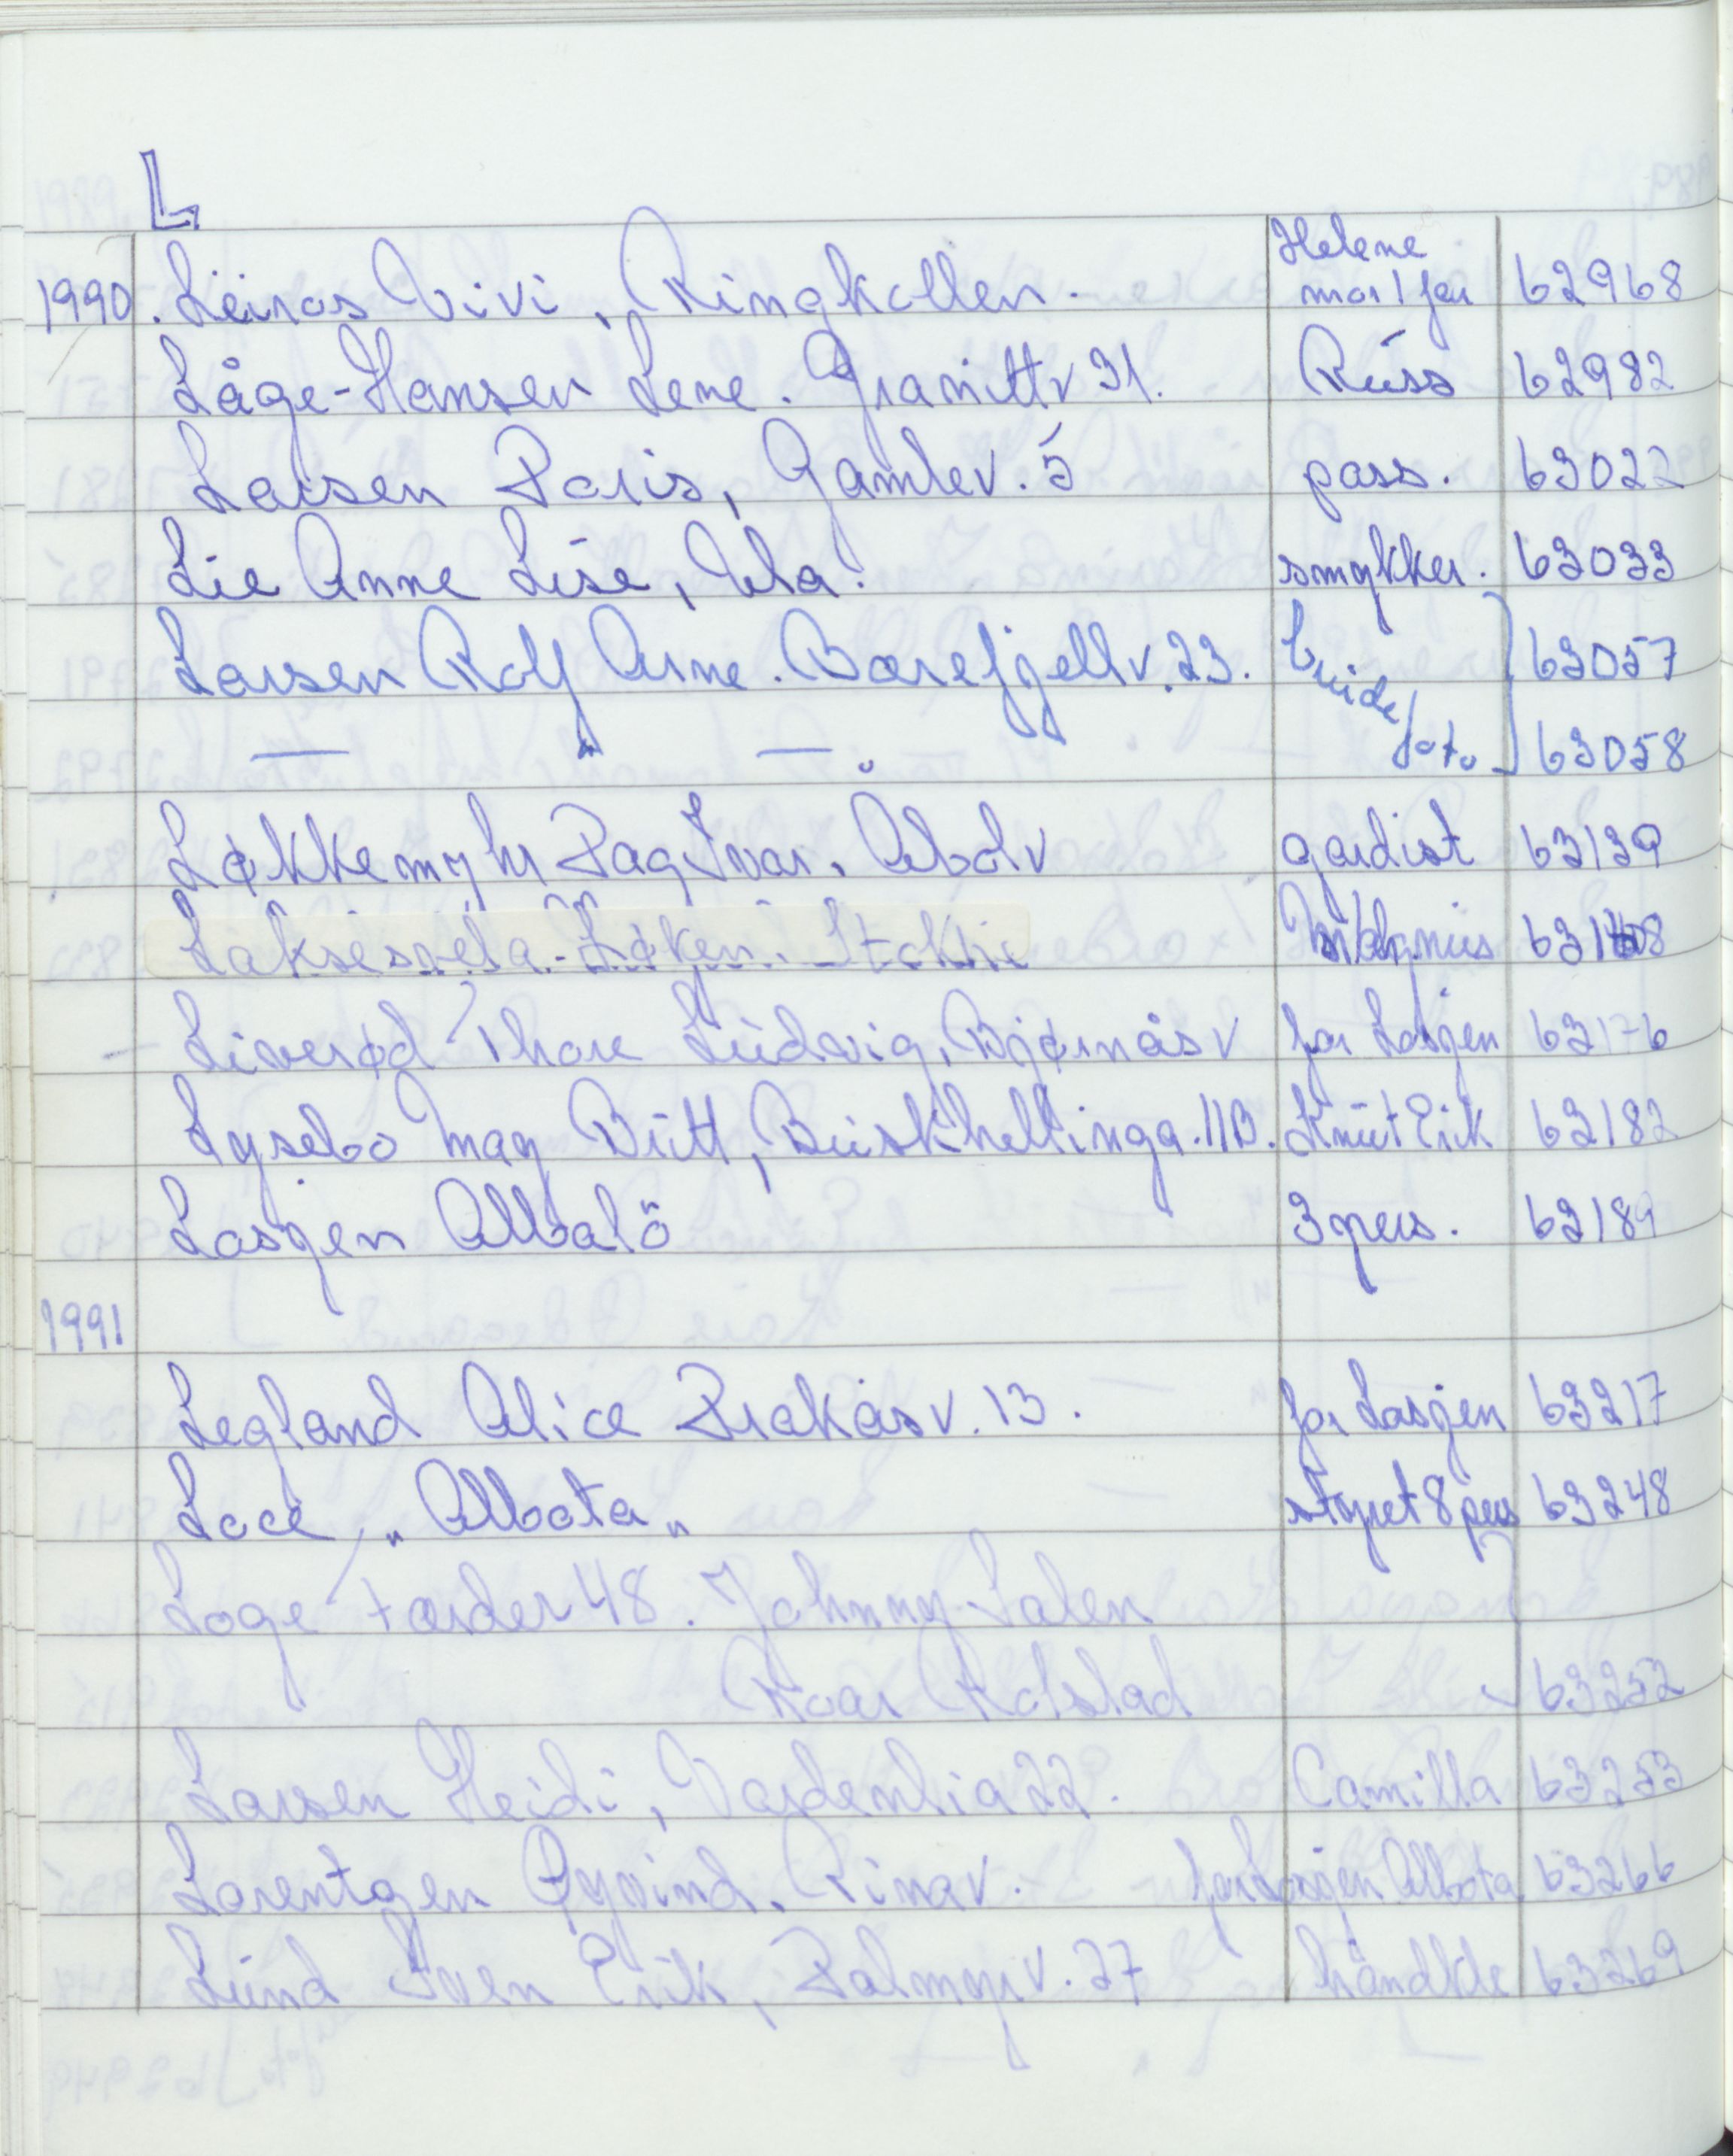 L
Helene
1990. Leiros Vivi, Ringkollen. mor/far 62968
Låge-Hansen Lene. Granittv 31. Russ 62982
Larsen Doris, Gamlev. 5 pass. 63022
Lie Anne Lise, Ula. smykker. 63033
Larsen Rolf Arne. Barefjellv. 23. brude 63057
— " — foto 63058
Løkkemyhr Dag Ivar. Åbolv gardist 63139
Magnus
Liverød Thore Ludvig, Bjørnåsv for Losjen 63176
Lysebo May Britt, Buskhellinga. 11B. Knut Erik 63182
Losjen Albatō 3 pers. 63189
1991
Legland Alice Drakåsv. 13. for Losjen 63217
Loce „Albata" styret 8 pers 63248
Loge Færder 48. Johnny Salen
Roar Rolstad 63252
Larsen Heidi, Vardenlia 22. Camilla 63253
Lorentzen Øyvind. Rinav. for Losjen Albata 63266
Lund Sven Erik, Dalmyrv. 27 håndkle 63269